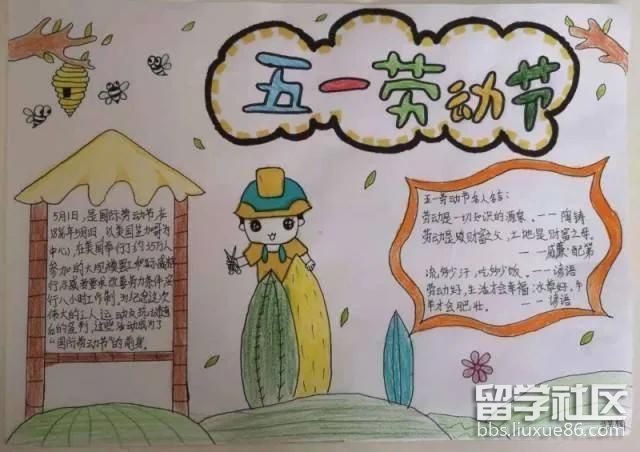 五一劳动节
5月1日,是国际劳动节,在
1886年5月1日,以美国芝加哥为
中心,在美国举行了约35万人
参加的大规模罢工和示威游
行示威者要求改善劳动条件,实
行八小时工作制,为纪念这次
伟大的工人运动
的宣判,这些活动成为了
"国际劳动节"的前身。
五一劳动节名人名言:
劳动是一切知识的源泉。——陶铸
劳动是财富之父,土地是财富之母。
——威廉·配第
流多少汗,吃多少饭。——谚语
劳动好,生活才会幸福;水草好,牛
羊才会肥壮。——谚语
留学社区
bbs.liuxue86.com